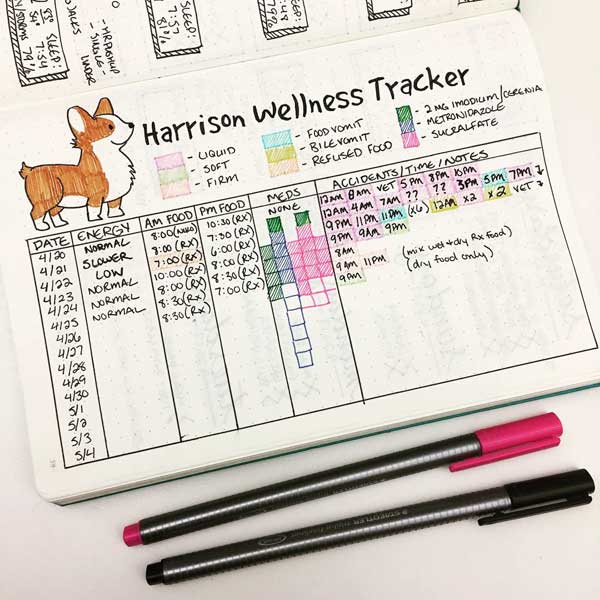 SLEEP:
7:54
79%
SLEEP:
7:57
81%
SLEEP:
7:48
Harrison Wellness Tracker
- LIQUID
- SOFT
- FIRM
- FOOD VOMIT
- BILE VOMIT
- REFUSED FOOD
- 2 MG IMODIUM/CERENIA
- METRONIDAZOLE
- SUCRALFATE
DATE ENERGY AM FOOD PM FOOD MEDS ACCIDENTS/TIME/NOTES
4/20 NORMAL 8:00 10:30(RX) NONE 12AM 8AM VET 5PM 8PM 10PM
4/21 SLOWER 8:00(RX) 7:50(RX) 12AM 4AM 7AM ?? ?? 3PM 5PM 7PM
4/22 LOW 7:00(RX) 6:00(RX) 9PM 11PM 11PM (x6) 12AM x2 x2 VET
4/23 NORMAL 10:00(RX) 8:00(RX) 9PM 9AM 9PM
4/24 NORMAL 8:00(RX) 8:30(RX) 8AM
4/25 NORMAL 8:30(RX) 7:00(RX) 9AM 11PM (mix wet+dry Rx food)
4/26 8:30(RX) 9PM (dry food only)
4/27
4/28
4/29
4/30
5/1
5/2
5/3
5/4
STAEDTLER